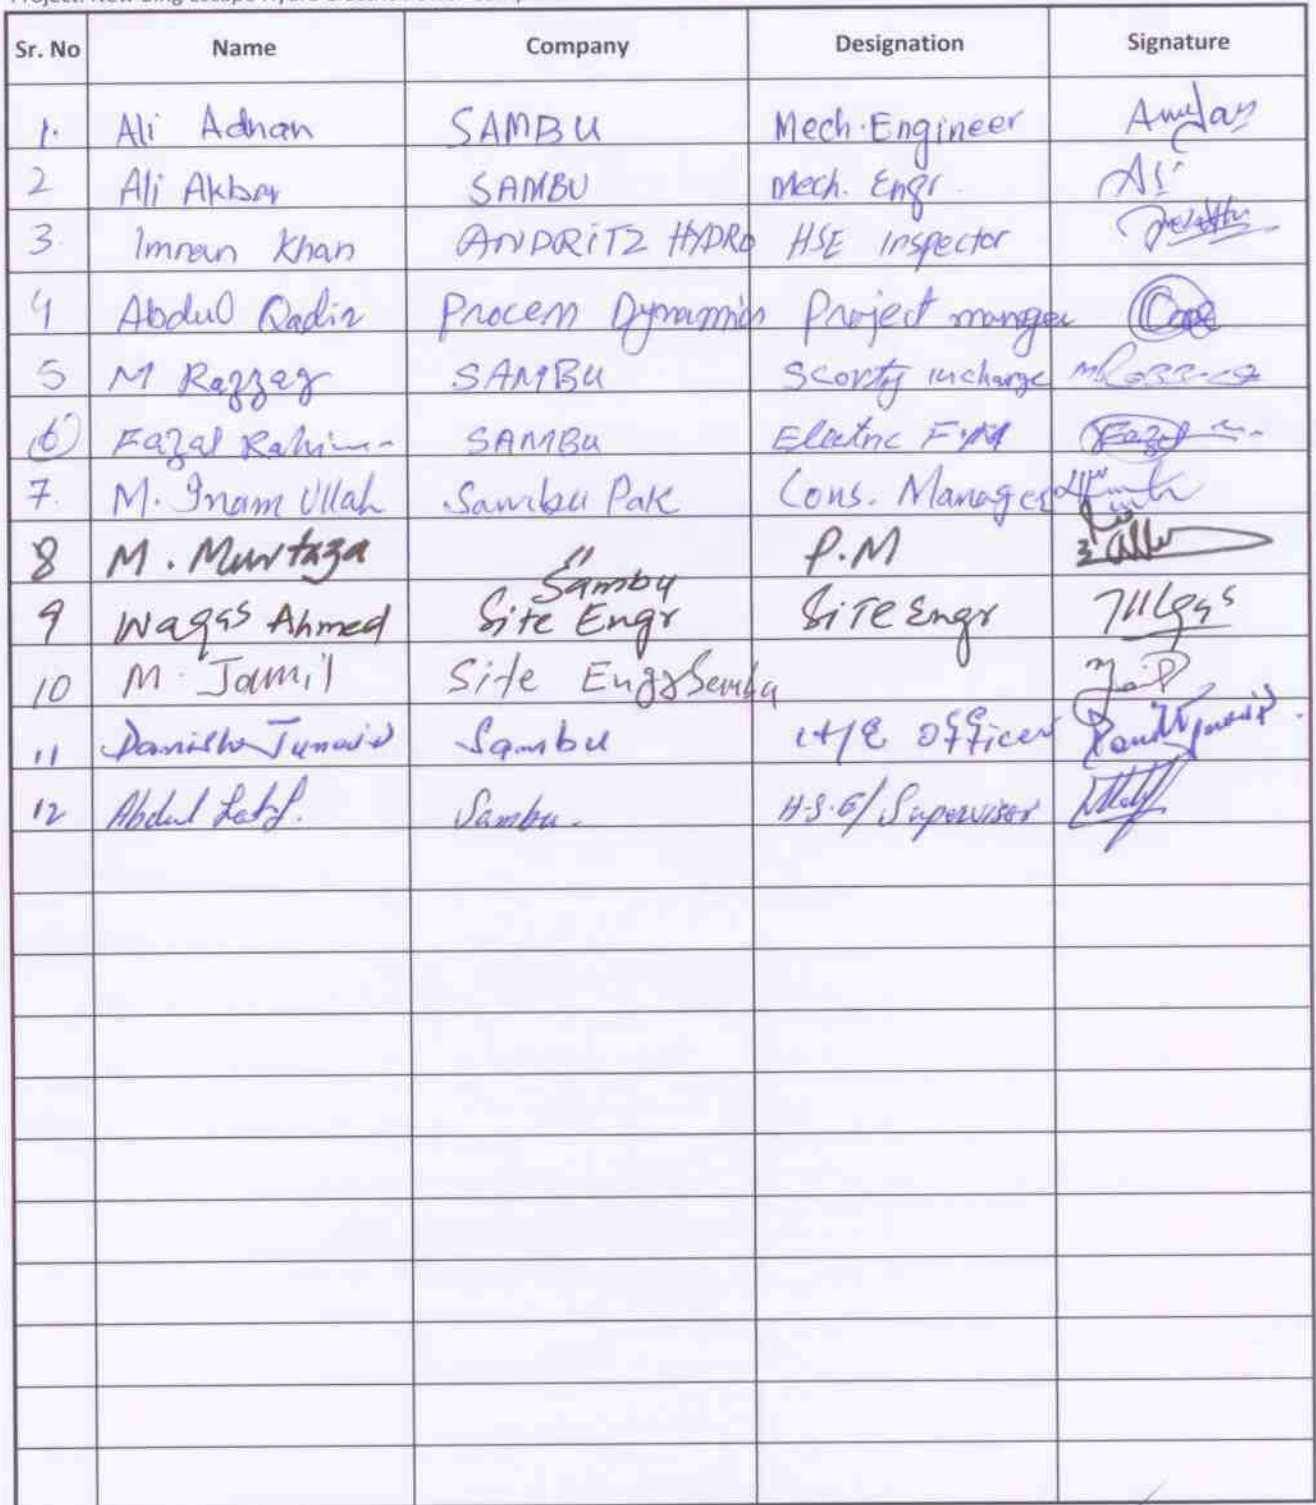 Sr. No Name Company Designation Signature
1. Ali Adnan SAMBU Mech. Engineer
2 Ali Akbar SAMBU Mech. Engr Ali
3 Imran Khan ANDRITZ HYDRO HSE Inspector
4 Abdul Qadir Process Dynamics Project manger
5 M Razzaq SAMBU Scorty incharge
6 Fazal Rahim SAMBU Electric F.M Fazal
7. M. Inam Ullah Sambu Pak Cons. Manager
8 M. Murtaza " P.M
Sambu
9 Waqas Ahmed Site Engr Site Engr
10 M. Jamil Site Engr Sambu
11 Danish Junaid Sambu Officer
12 Abdul Latif. Sambu. H.S.E/ Supervisor